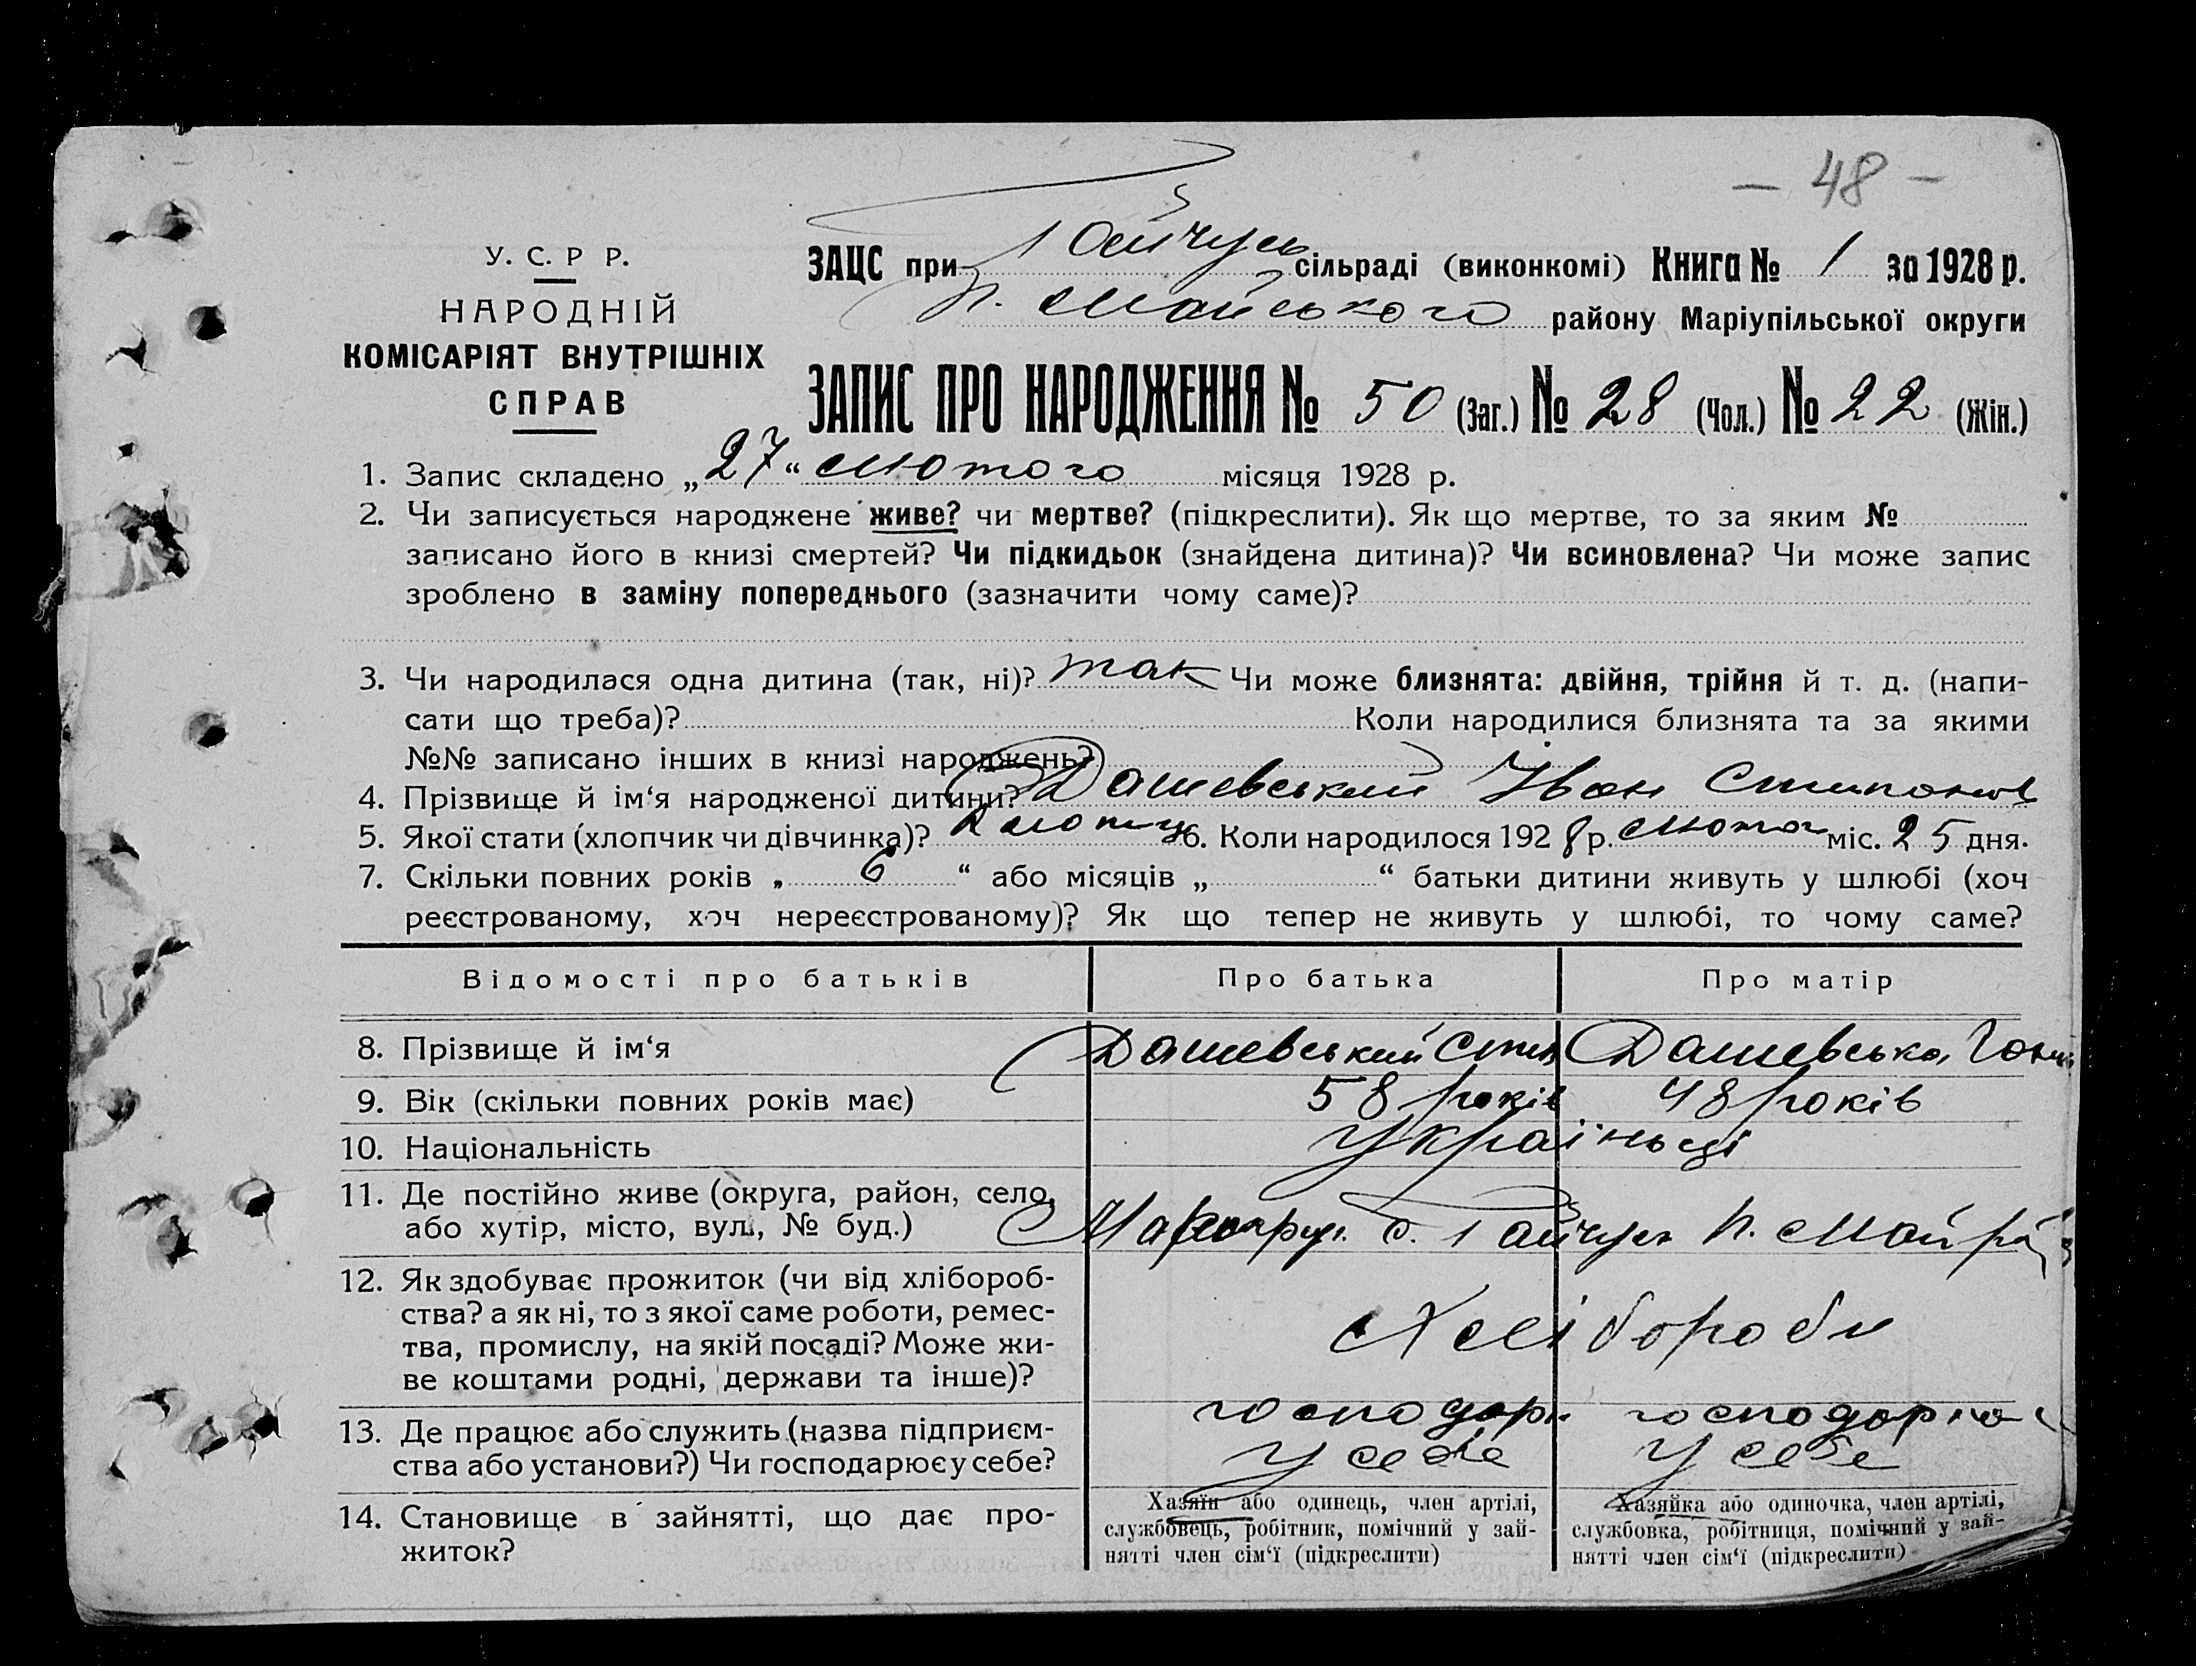 — 48 —
У. С. Р Р.
НАРОДНІЙ
КОМІСАРІЯТ ВНУТРІШНІХ
СПРАВ
ЗАЦС при Гайчусь сільраді (виконкомі) Книга № 1 за 1928 р.
П. Майського району Маріупільської округи
ЗАПИС ПРО НАРОДЖЕННЯ № 50 (Заг.) № 28 (Чол.) № 22 (Жін.)
1. Запис складено „27“ лютого місяця 1928 р.
2. Чи записується народжене живе? чи мертве? (підкреслити). Як що мертве, то за яким №
записано його в книзі смертей? Чи підкидьок (знайдена дитина)? Чи всиновлена? Чи може запис
зроблено в заміну попереднього (зазначити чому саме)?
3. Чи народилася одна дитина (так, ні)? так Чи може близнята: двійня, трійня й т. д. (напи-
сати що треба)? Коли народилися близнята та за якими
№№ записано інших в книзі народжень?
4. Прізвище й ім‘я народженої дитини? Дашевський Іван
5. Якої стати (хлопчик чи дівчинка)? 6. Коли народилося 1928 р. лютого міс. 25 дня.
7. Скільки повних років „ 6 “ або місяців „ “ батьки дитини живуть у шлюбі (хоч
реєстрованому, хоч нереєстрованому)? Як що тепер не живуть у шлюбі, то чому саме?
Відомості про батьків Про батька Про матір
8. Прізвище й ім‘я Дашевський Дашевська
9. Вік (скільки повних років має) 58 років 48 років
10. Національність Україньці
11. Де постійно живе (округа, район, село,
або хутір, місто, вул., № буд.) с. Гайчусь П. Май
12. Як здобуває прожиток (чи від хлібороб-
ства? а як ні, то з якої саме роботи, ремес-
тва, промислу, на якій посаді? Може жи-
ве коштами родні, держави та інше)? Хлібороби
13. Де працює або служить (назва підприєм-
ства або установи?) Чи господарює у себе? у себе у себе
14. Становище в зайнятті, що дає про-
житок?
Хазяїн або одинець, член артілі,
службовець, робітник, помічний у зай-
нятті член сім‘ї (підкреслити)
Хазяйка або одиночка, член артілі,
службовка, робітниця, помічний у зай-
нятті член сім‘ї (підкреслити)